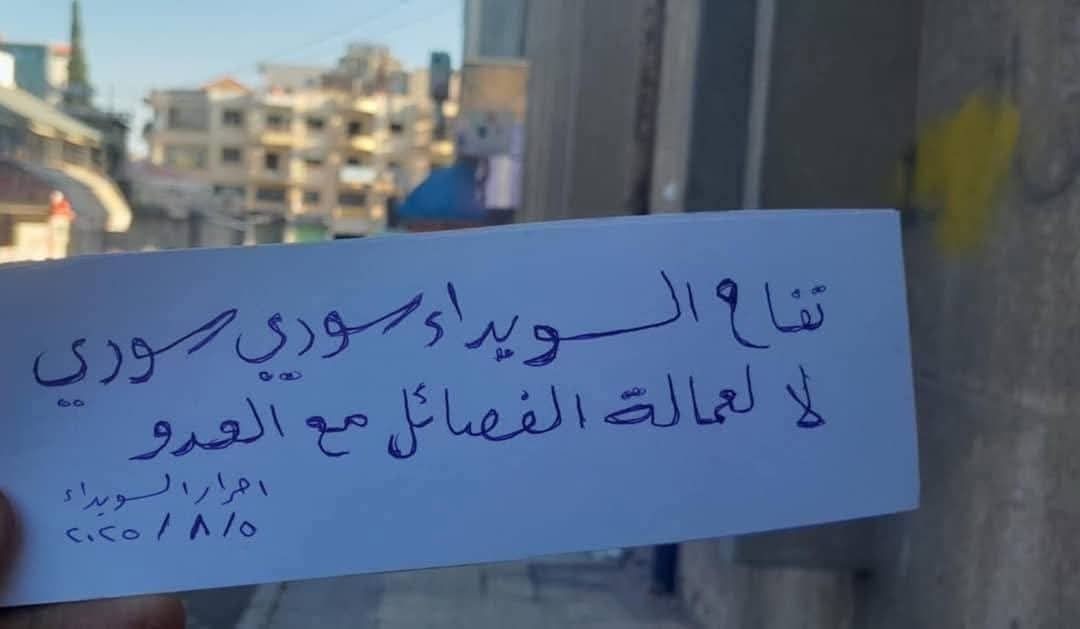 تفاح السويداء سوري سوري
لا لعمالة الفصائل مع العدو
احرار السويداء
٢٠٢٥/٨/٥